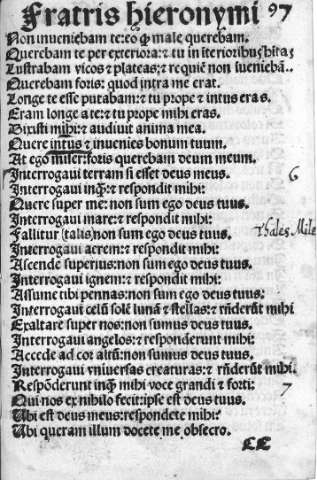 Fratris hieronymi 97
Non inueniebam te: eo ꝙ male querebam.
Querebam te per exteriora: et tu in īterioribus hītas
Lustrabam vicos et plateas: et requiē non īueniebā..
Querebam foris: quod intra me erat.
Longe te esse putabam: et tu prope et intus eras.
Eram longe a te: et tu prope mihi eras.
Dixisti mihi: et audiuit anima mea.
Quere intus et inuenies bonum tuum.
At ego miser: foris querebam deum meum.
Interrogaui terram si esset deus meus. 6
Interrogaui inq̄: et respondit mihi:
Quere super me: non sum ego deus tuus.
Interrogaui mare: et respondit mihi:
Fallitur (talis) non sum ego deus tuus. Thales Mile
Interrogaui aerem: et respondit mihi:
Ascende superius: non sum ego deus tuus.
Interrogaui ignem: et respondit mihi:
Assume tibi pennas: non sum ego deus tuus:
Interrogaui celū solē lunā et stellas: et rn̄derūt mihi
Exaltare super nos: non sumus deus tuus.
Interrogaui angelos: et responderunt mihi:
Accede ad cor altū: non sumus deus tuus.
Interrogaui vniuersas creaturas: et rn̄derūt mihi.
Respōderunt inq̄ mihi voce grandi et forti: 7
Qui nos ex nihilo fecit: ipse est deus tuus.
Ubi est deus meus: respondete mihi?
Ubi queram illum docete me obsecro.
EE